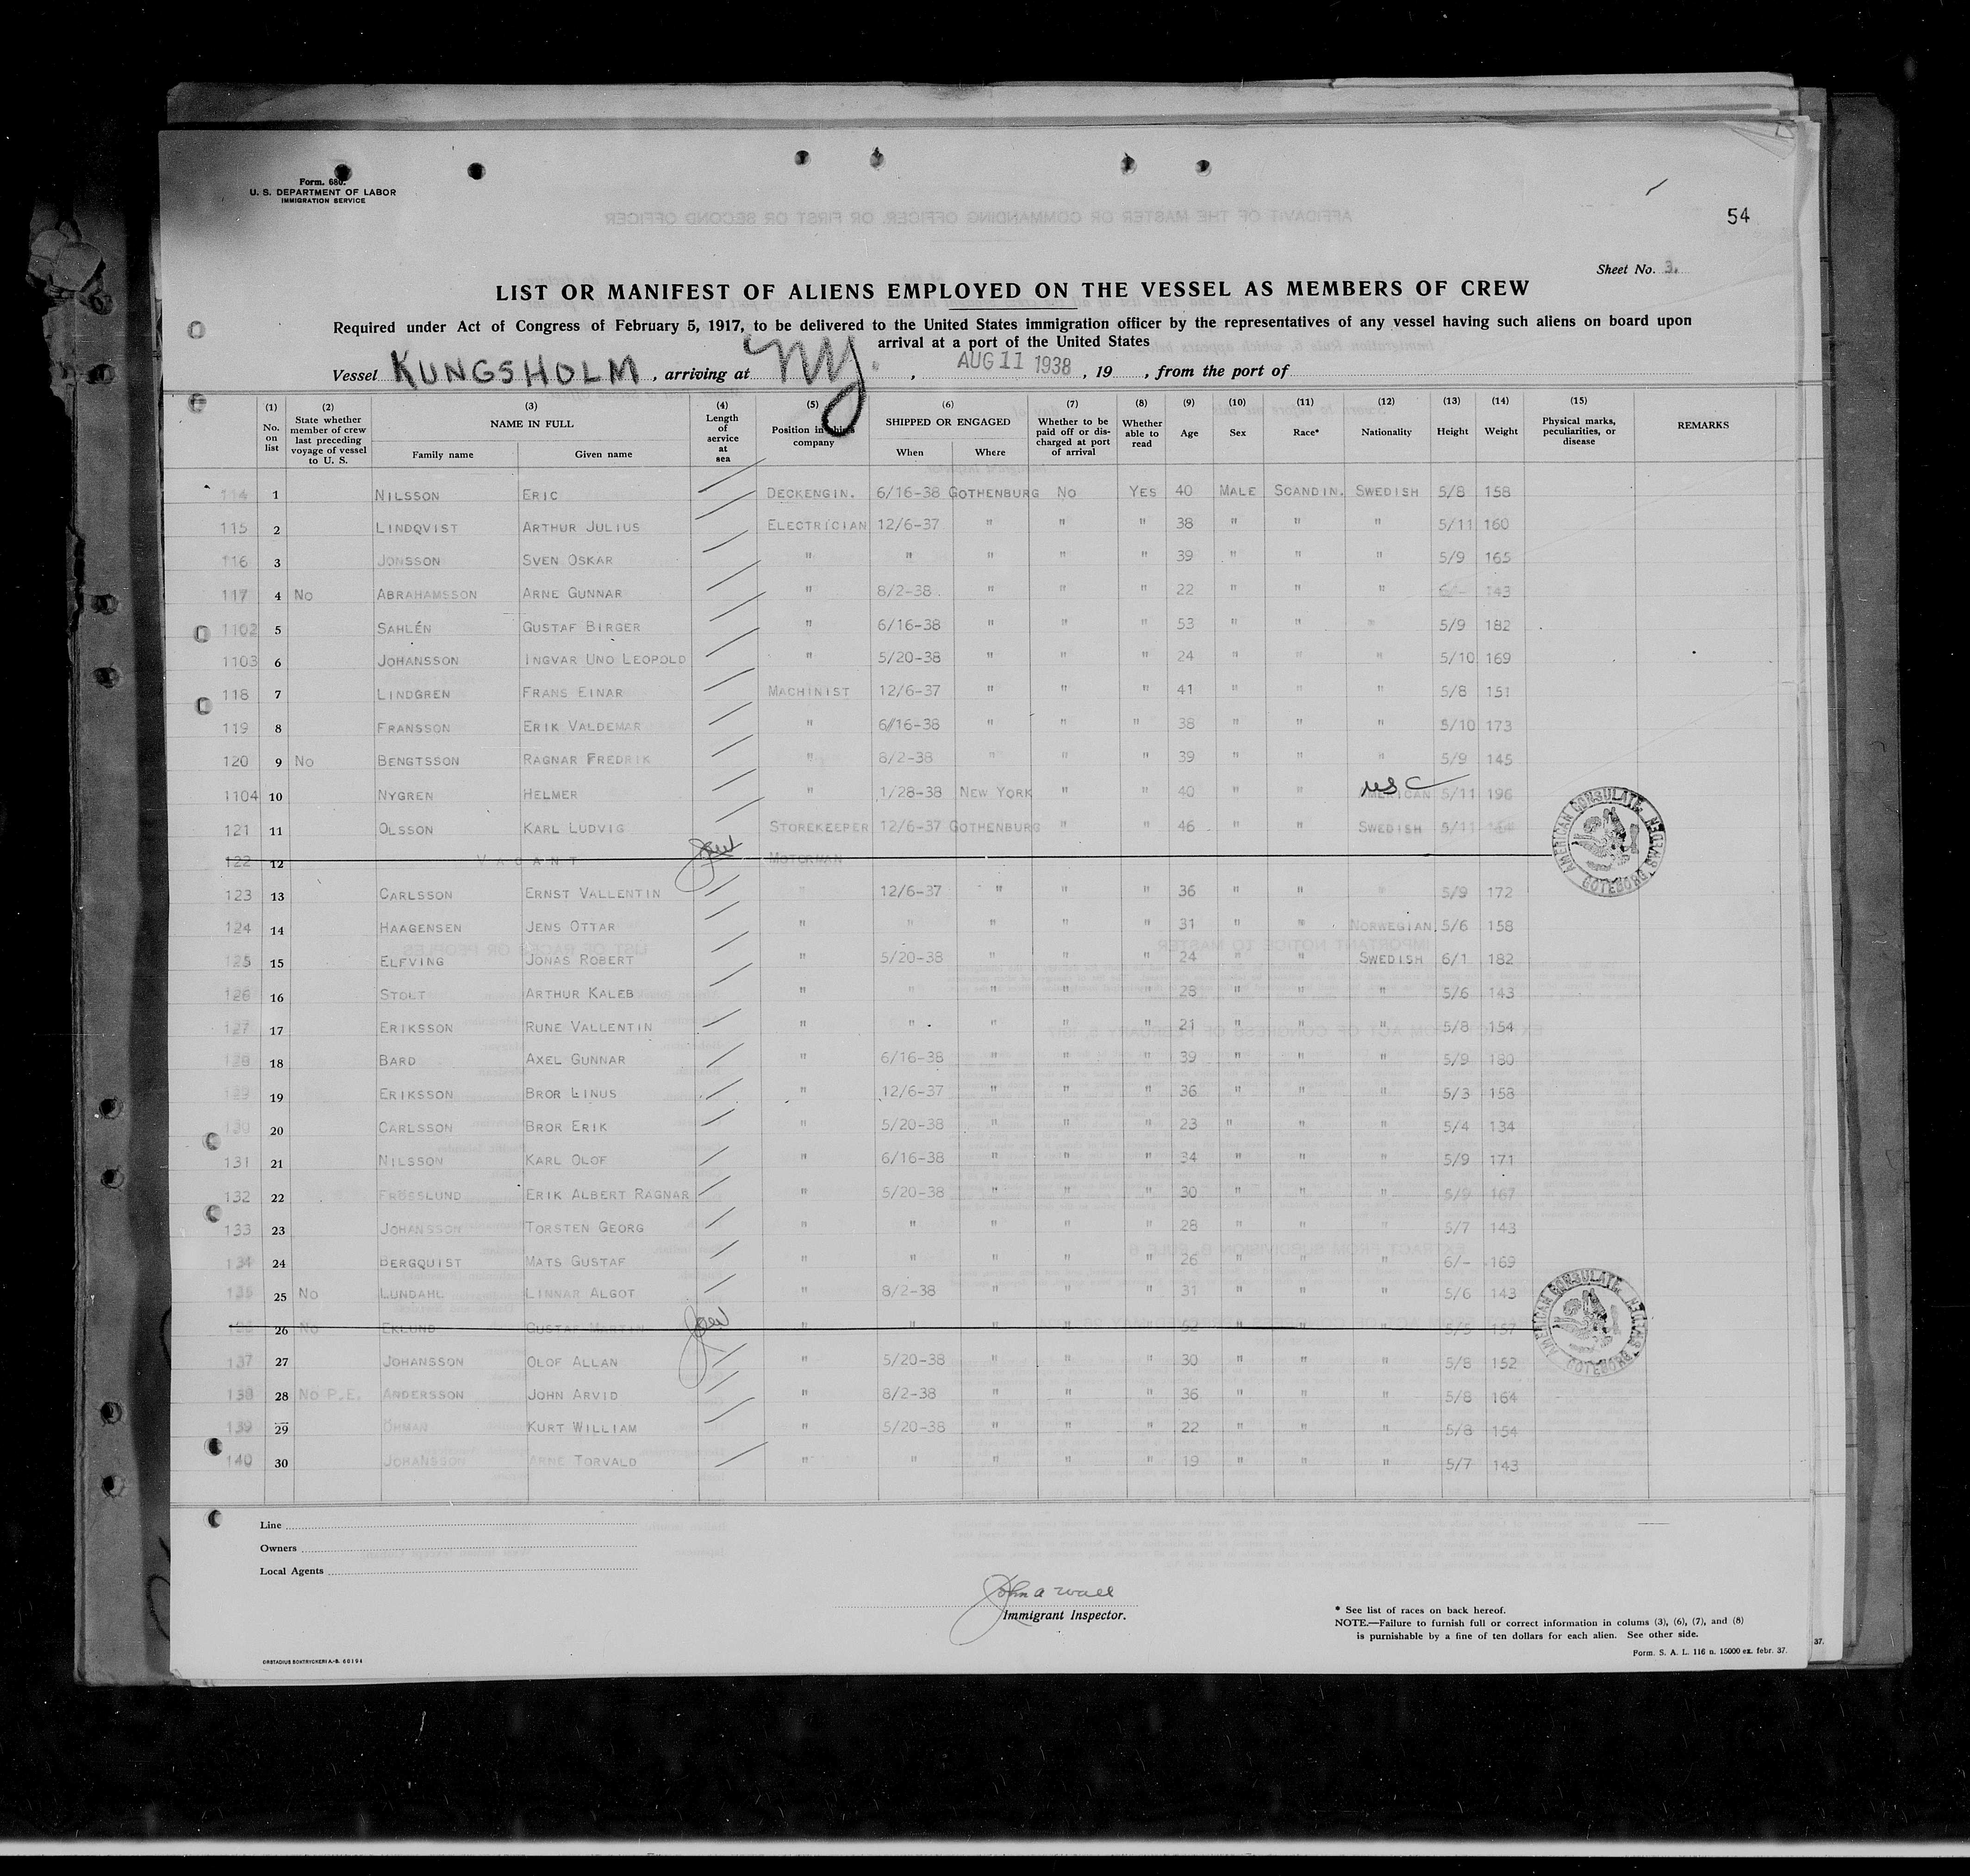 Form. 680.
U. S. DEPARTMENT OF LABOR
IMMIGRATION SERVICE
54
Sheet No. 3.
LIST OR MANIFEST OF ALIENS EMPLOYED ON THE VESSEL AS MEMBERS OF CREW
Required under Act of Congress of February 5, 1917, to be delivered to the United States immigration officer by the representatives of any vessel having such aliens on board upon
arrival at a port of the United States
Vessel KUNGSHOLM, arriving at NY. , AUG 11 1938, 19 , from the port of
(1) No. on list (2) State whether member of crew last preceding voyage of vessel to U. S. (3) NAME IN FULL Family name Given name (4) Length of service at sea (5) Position in ship's company (6) SHIPPED OR ENGAGED When Where (7) Whether to be paid off or discharged at port of arrival (8) Whether able to read (9) Age (10) Sex (11) Race* (12) Nationality (13) Height (14) Weight (15) Physical marks, peculiarities, or disease REMARKS
114 1 NILSSON ERIC DECKENGIN. 6/16-38 GOTHENBURG No YES 40 MALE SCANDIN. SWEDISH 5/8 158
115 2 LINDQVIST ARTHUR JULIUS ELECTRICIAN 12/6-37 " " " 38 " " " 5/11 160
116 3 JONSSON SVEN OSKAR " " " " " 39 " " " 5/9 165
117 4 No ABRAHAMSSON ARNE GUNNAR " 8/2-38 " " " 22 " " " 6/- 143
1102 5 SAHLÉN GUSTAF BIRGER " 6/16-38 " " " 53 " " " 5/9 182
1103 6 JOHANSSON INGVAR UNO LEOPOLD " 5/20-38 " " " 24 " " " 5/10 169
118 7 LINDGREN FRANS EINAR MACHINIST 12/6-37 " " " 41 " " " 5/8 151
119 8 FRANSSON ERIK VALDEMAR " 6/16-38 " " " 38 " " " 5/10 173
120 9 No BENGTSSON RAGNAR FREDRIK " 8/2-38 " " " 39 " " " 5/9 145
1104 10 NYGREN HELMER " 1/28-38 NEW YORK " " 40 " " AMERICAN USC 5/11 196
121 11 OLSSON KARL LUDVIG STOREKEEPER 12/6-37 GOTHENBURG " " 46 " " SWEDISH 5/11
122 12 VACANT MOTORMAN
123 13 CARLSSON ERNST VALLENTIN " 12/6-37 " " " 36 " " " 5/9 172
124 14 HAAGENSEN JENS OTTAR " " " " " 31 " " NORWEGIAN 5/6 158
125 15 ELFVING JONAS ROBERT " 5/20-38 " " " 24 " " SWEDISH 6/1 182
126 16 STOLT ARTHUR KALEB " " " " " 28 " " " 5/6 143
127 17 ERIKSSON RUNE VALLENTIN " " " " " 21 " " " 5/8 154
128 18 BARD AXEL GUNNAR " 6/16-38 " " " 39 " " " 5/9 180
129 19 ERIKSSON BROR LINUS " 12/6-37 " " " 36 " " " 5/3 158
130 20 CARLSSON BROR ERIK " 5/20-38 " " " 23 " " " 5/4 134
131 21 NILSSON KARL OLOF " 6/16-38 " " " 34 " " " 5/9 171
132 22 FRÖSSLUND ERIK ALBERT RAGNAR " 5/20-38 " " " 30 " " " 5/9 167
133 23 JOHANSSON TORSTEN GEORG " " " " " 28 " " " 5/7 143
134 24 BERGQUIST MATS GUSTAF " " " " " 26 " " " 6/- 169
135 25 No LUNDAHL LINNAR ALGOT " 8/2-38 " " " 31 " " " 5/6 143
136 26 No EKLUND GUSTAF MARTIN " " " " " 52 " " " 5/5 157
137 27 JOHANSSON OLOF ALLAN " 5/20-38 " " " 30 " " " 5/8 152
138 28 No P.E. ANDERSSON JOHN ARVID " 8/2-38 " " " 36 " " " 5/8 164
139 29 ÖHMAN KURT WILLIAM " 5/20-38 " " " 22 " " " 5/8 154
140 30 JOHANSSON ARNE TORVALD " " " " " 19 " " " 5/7 143
AMERICAN CONSULATE GOTEBORG SWEDEN
AMERICAN CONSULATE GOTEBORG SWEDEN
Line
Owners
Local Agents
John A Wall
Immigrant Inspector.
* See list of races on back hereof.
NOTE.—Failure to furnish full or correct information in colums (3), (6), (7), and (8)
is purnishable by a fine of ten dollars for each alien. See other side.
Form. S. A. L. 116 n. 15000 ex. febr. 37.
37.
ORSTADIUS BOKTRYCKERI A.-B. 66194